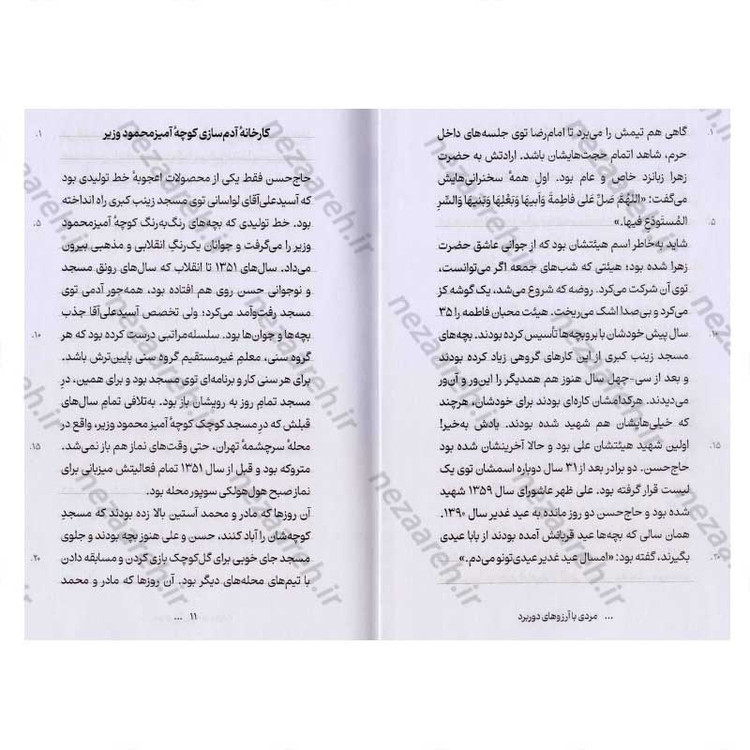 گاهی هم تیمش را می‌برد تا امام‌رضا توی جلسه‌های داخل
حرم، شاهد اتمام حجت‌هایشان باشد. ارادتش به حضرت
زهرا زبانزد خاص و عام بود. اولِ همهٔ سخنرانی‌هایش
می‌گفت: «اللهُمَّ صَلِّ عَلی فاطِمَةَ وَ اَبیها وَ بَعْلِها وَ بَنیها وَ السِّرِ
المُستَودَعِ فیها.»
شاید به‌خاطر اسم هیئتشان بود که از جوانی عاشق حضرت
زهرا شده بود؛ هیئتی که شب‌های جمعه اگر می‌توانست،
توی آن شرکت می‌کرد. روضه که شروع می‌شد، یک گوشه کز
می‌کرد و بی‌صدا اشک می‌ریخت. هیئت محبان فاطمه را ۳۵
سال پیش خودشان با بروبچه‌ها تأسیس کرده بودند. بچه‌های
مسجد زینب کبری از این کارهای گروهی زیاد کرده بودند
و بعد از سی-چهل سال هنوز هم همدیگر را این‌ور و آن‌ور
می‌دیدند. هرکدامشان کاره‌ای بودند برای خودشان، هرچند
که خیلی‌هایشان هم شهید شده بودند. یادش به‌خیر!
اولین شهید هیئتشان علی بود و حالا آخرینشان شده بود
حاج‌حسن. دو برادر بعد از ۳۱ سال دوباره اسمشان توی یک
لیست قرار گرفته بود. علی ظهر عاشورای سال ۱۳۵۹ شهید
شده بود و حاج‌حسن دو روز مانده به عید غدیر سال ۱۳۹۰.
همان سالی که بچه‌ها عید قربانش آمده بودند از بابا عیدی
بگیرند، گفته بود: «امسال عید غدیر عیدی‌تونو می‌دم.»
... مردی با آرزوهای دوربرد
کارخانهٔ آدم‌سازی کوچهٔ آمیزمحمود وزیر
حاج‌حسن فقط یکی از محصولات اعجوبهٔ خط تولیدی بود
که آسیدعلی‌آقای لواسانی توی مسجد زینب کبری راه انداخته
بود. خط تولیدی که بچه‌های رنگ‌به‌رنگ کوچهٔ آمیزمحمود
وزیر را می‌گرفت و جوانان یک‌رنگِ انقلابی و مذهبی بیرون
می‌داد. سال‌های ۱۳۵۱ تا انقلاب که سال‌های رونق مسجد
و نوجوانی حسن روی هم افتاده بود، همه‌جور آدمی توی
مسجد رفت‌وآمد می‌کرد؛ ولی تخصص آسیدعلی‌آقا جذب
بچه‌ها و جوان‌ها بود. سلسله‌مراتبی درست کرده بود که هر
گروه سنی، معلم غیرمستقیم گروه سنی پایین‌ترش باشد.
برای هر سنی کار و برنامه‌ای توی مسجد بود و برای همین، درِ
مسجد تمام روز به رویشان باز بود. به‌تلافی تمام سال‌های
قبلش که درِ مسجد کوچک کوچهٔ آمیز محمود وزیر، واقع در
محلهٔ سرچشمهٔ تهران، حتی وقت‌های نماز هم باز نمی‌شد.
متروکه بود و قبل از سال ۱۳۵۱ تمام فعالیتش میزبانی برای
نماز صبح هول‌هولکی سوپور محله بود.
آن روزها که مادر و محمد آستین بالا زده بودند که مسجدِ
کوچه‌شان را آباد کنند، حسن و علی هنوز بچه بودند و جلوی
مسجد جای خوبی برای گل‌کوچک بازی کردن و مسابقه دادن
با تیم‌های محله‌های دیگر بود. آن روزها که مادر و محمد
۱۱ ...
nezaareh.ir